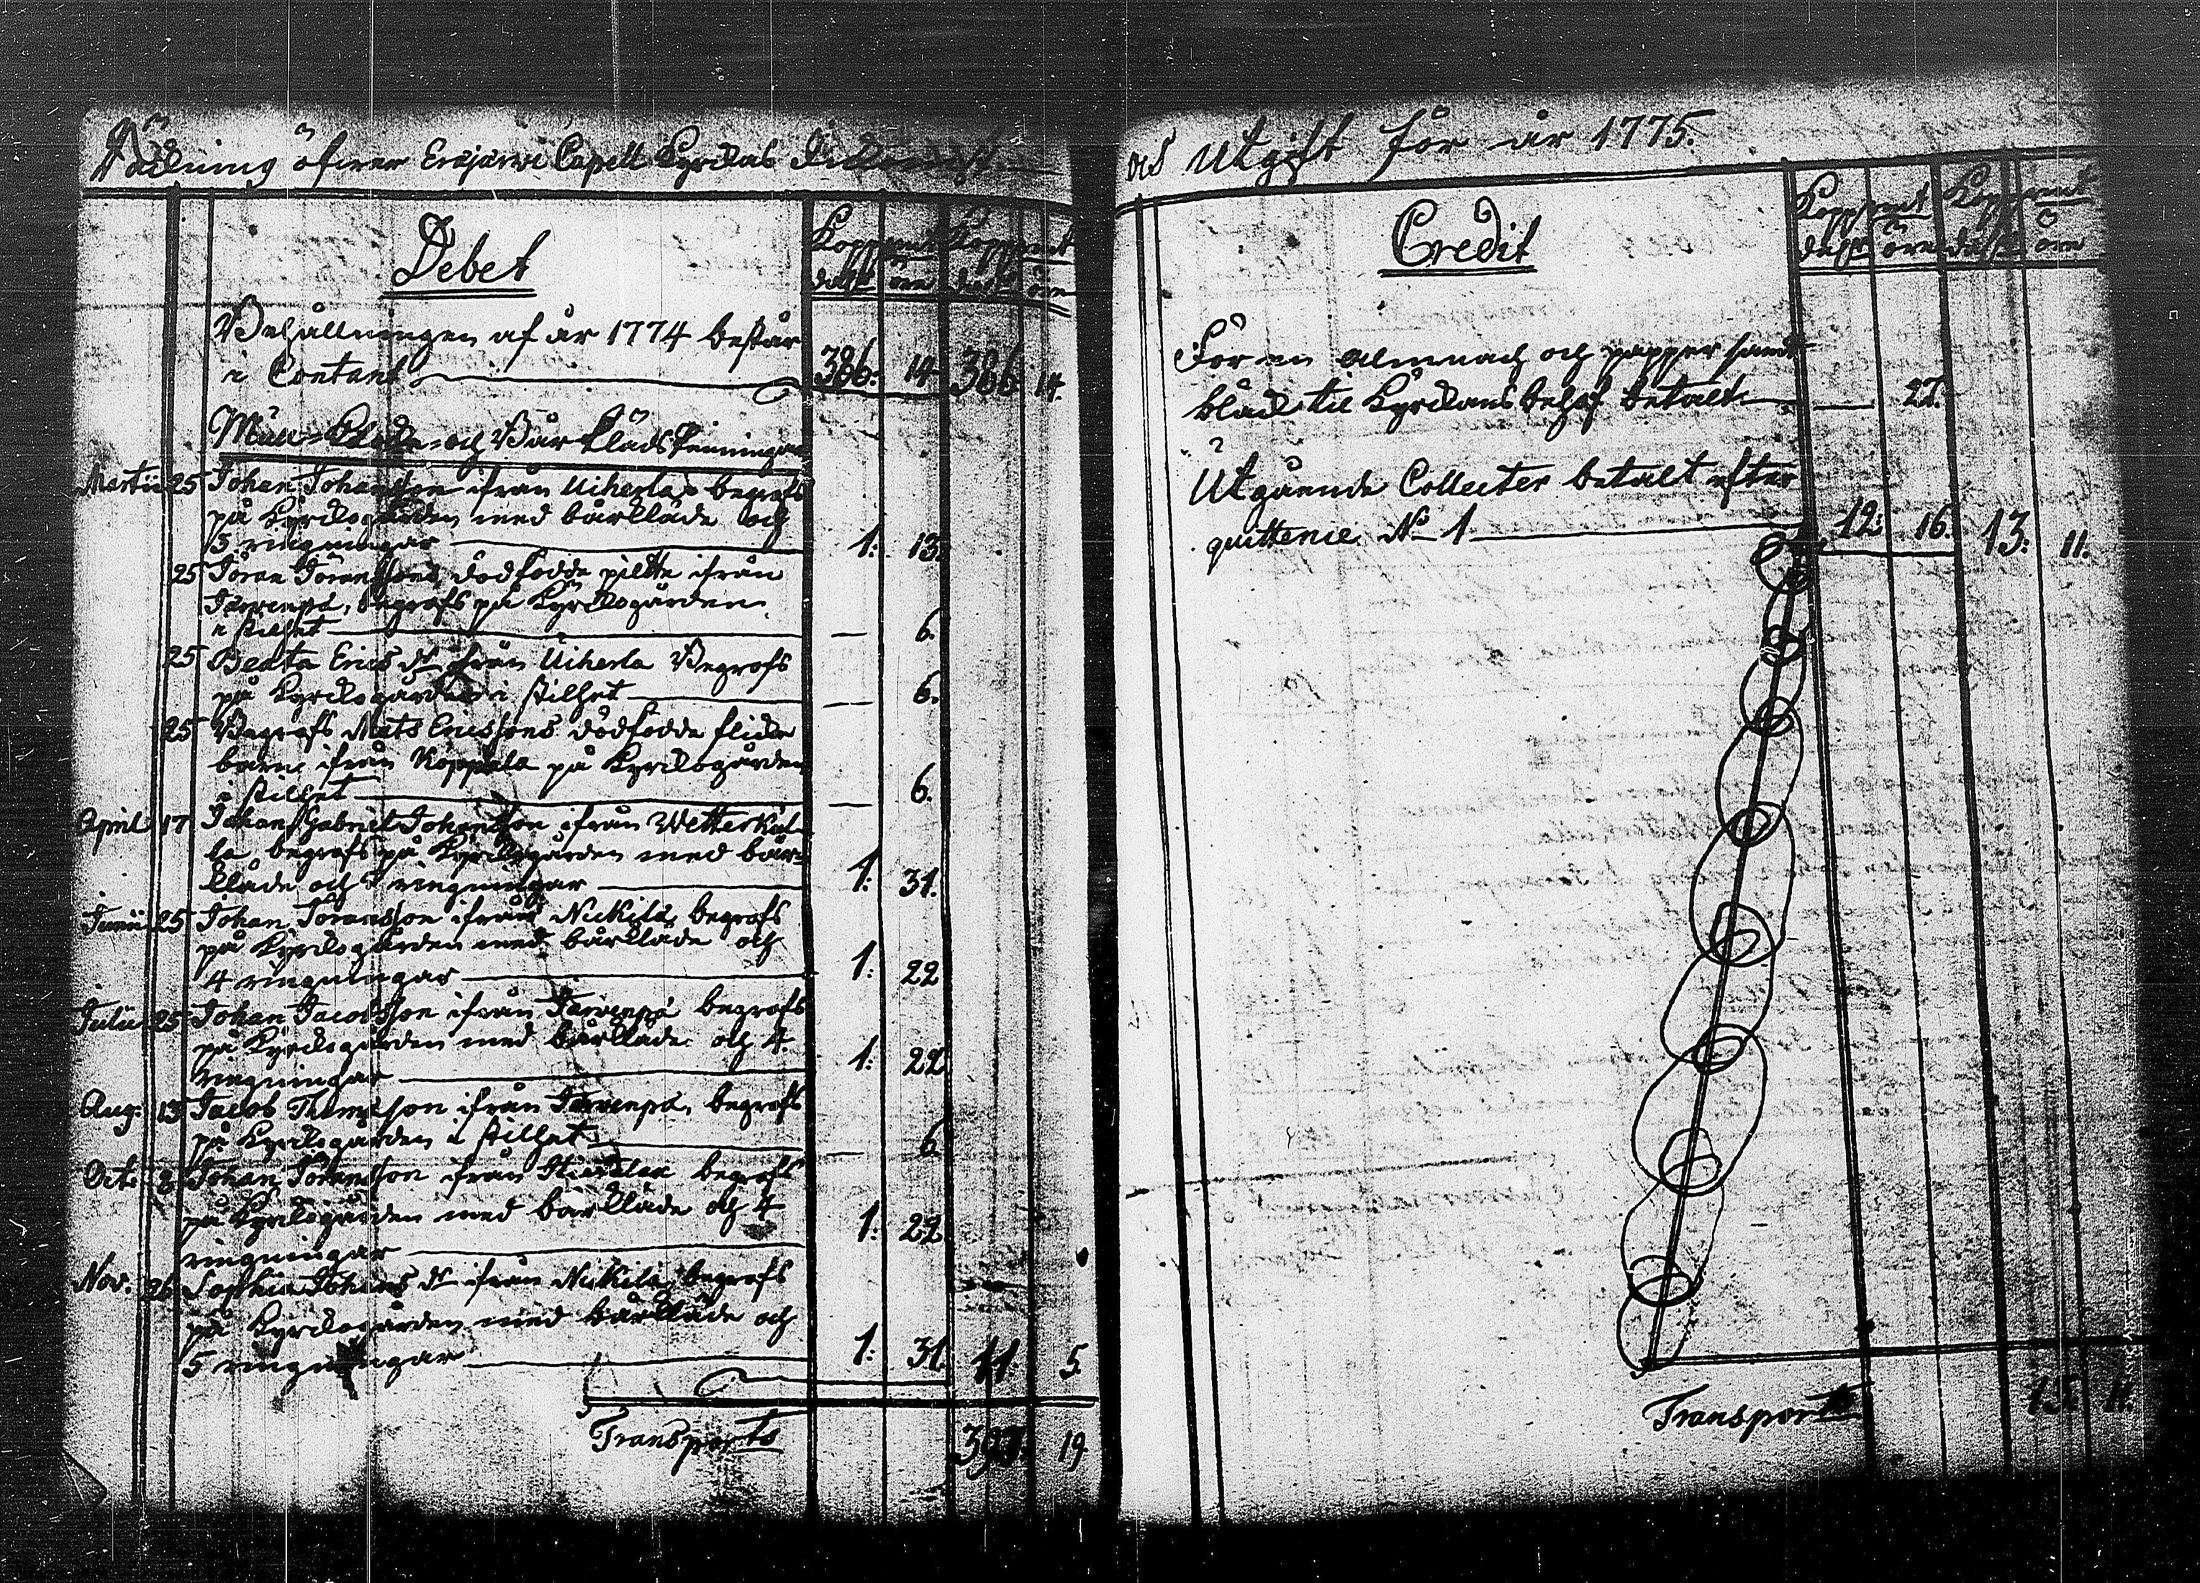 Räkning öfwer Eräjärwi Capell Kyrckas
Debet
Koppmt Koppmt
dalr öre dalr öre
Behållningen af år 1774 består
i Contant 386: 14 386 14.
Mull- och Bårklädspenningar
Martii 25 Johan Johansson ifrån Uiherla, begrofs
på Kyrckogården med bårkläde och
3 ringningar 1: 13.
25 Jöran Jöranssons dödfödde piltte ifrån
Järvenpä, begrofs på Kyrckogården
i stilhet — 6.
25 Beata Ericsdr ifrån Uiherla Begrofs
på Kyrckogården i stilhet — 6.
25 Begrofs Mats Ericssons dödfödde flicke
barn ifrån Koppala på Kyrckogården
i stilhet — 6.
April 17 Johan Gabriel Johansson ifrån Wetterkul-
la begrofs på Kyrckogården med bår-
kläde och ringningar 1: 31.
Junii 25 Johan Jöransson ifrån Nickilä, begrofs
på Kyrckogården med bårkläde och
4 ringningar 1: 22
Julii 25 Johan Jacobsson ifrån Järvenpä begrofs
på Kyrckogården med bårkläde och 4
ringningar 1: 22
Aug: 13 Jacob Thomsson ifrån Järvenpä, begrofs
på Kyrckogården i stilhet — 6
Oct: 8 Johan Jöransson ifrån begrofs
på Kyrckogården med bårkläde och 4
ringningar 1: 22
Nov. 26 Sophia Johansdr ifrån Nickilä, begrofs
på Kyrckogården med bårkläde och
5 ringningar 1: 31 11 5.
Transporto 397: 19
och Utgift för år 1775.
Credit
Koppmt Koppmt
dalr öre dalr öre
För en almnach och papper samt
bläck til Kyrckans behof betalt — 27.
Utgående Collecter betalt efter
quittence No 1 12: 16. 13: 11.
Transporto 13: 11.